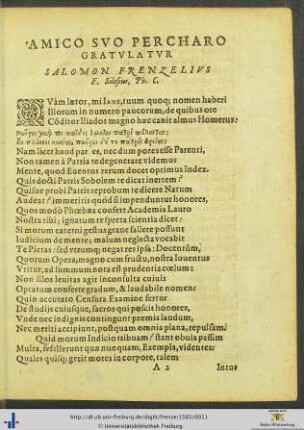 AMICO SVO PERCHARO
GRATVLATVR
SALOMON FRENZELIVS
F. Silesius, Ph. C.
QVàm lætor, mi IANE, tuum quoq; nomen haberi
Illorum in numero paucorum, de quibus ore
Côditor Iliados magno hæc canit almus Homerus:
Nam licet haud par es, nec dum pores esse Parenti,
Non tamen à Patria te degenerare videmus
Mente, quod Euentus rerum docet optimus Index.
Quis docti Patris Sobolem te dicat inertem?
Quisue probi Patris te probrum te dicere Natum
Audear? immeritis quód si impenduntur honores,
Quos modò Phœbæa confert Academia Lauro
Nostra tibi; ignarum te spreta scientia dicer:
Si morum externi gestus grauè fallere possunt
Iudicium de mente; malum neglecta vocabit
Te Pietas: sed vtrumq; negat res ipsa: Docentûm,
Quorum Opera, magno cum fructu, nostra Iuuentus
Vtitur, ad summum nota est prudentia cœlum:
Non illos leuitas agit inconsulta cuiuis
Optatum conferre gradum, & laudabile nomen:
Quin accurato Censura Examine fertur
De studijs cuiusque, sacros qui poscit honores,
Vnde nec indignis contingunt præmia laudum,
Nec meriti accipiunt, postquam omnia plana, repulsam.
Quid morum Indicio tribuam? stant obuia passim
Multa, fefellerunt quæ nunquam, Exempla, videntes:
Quales quisq; gerit mores in corpore, talem
A 2 Intus
http://dl.ub.uni-freiburg.de/diglit/frenzel1583/0011
© Universitätsbibliothek Freiburg
Baden-Württemberg